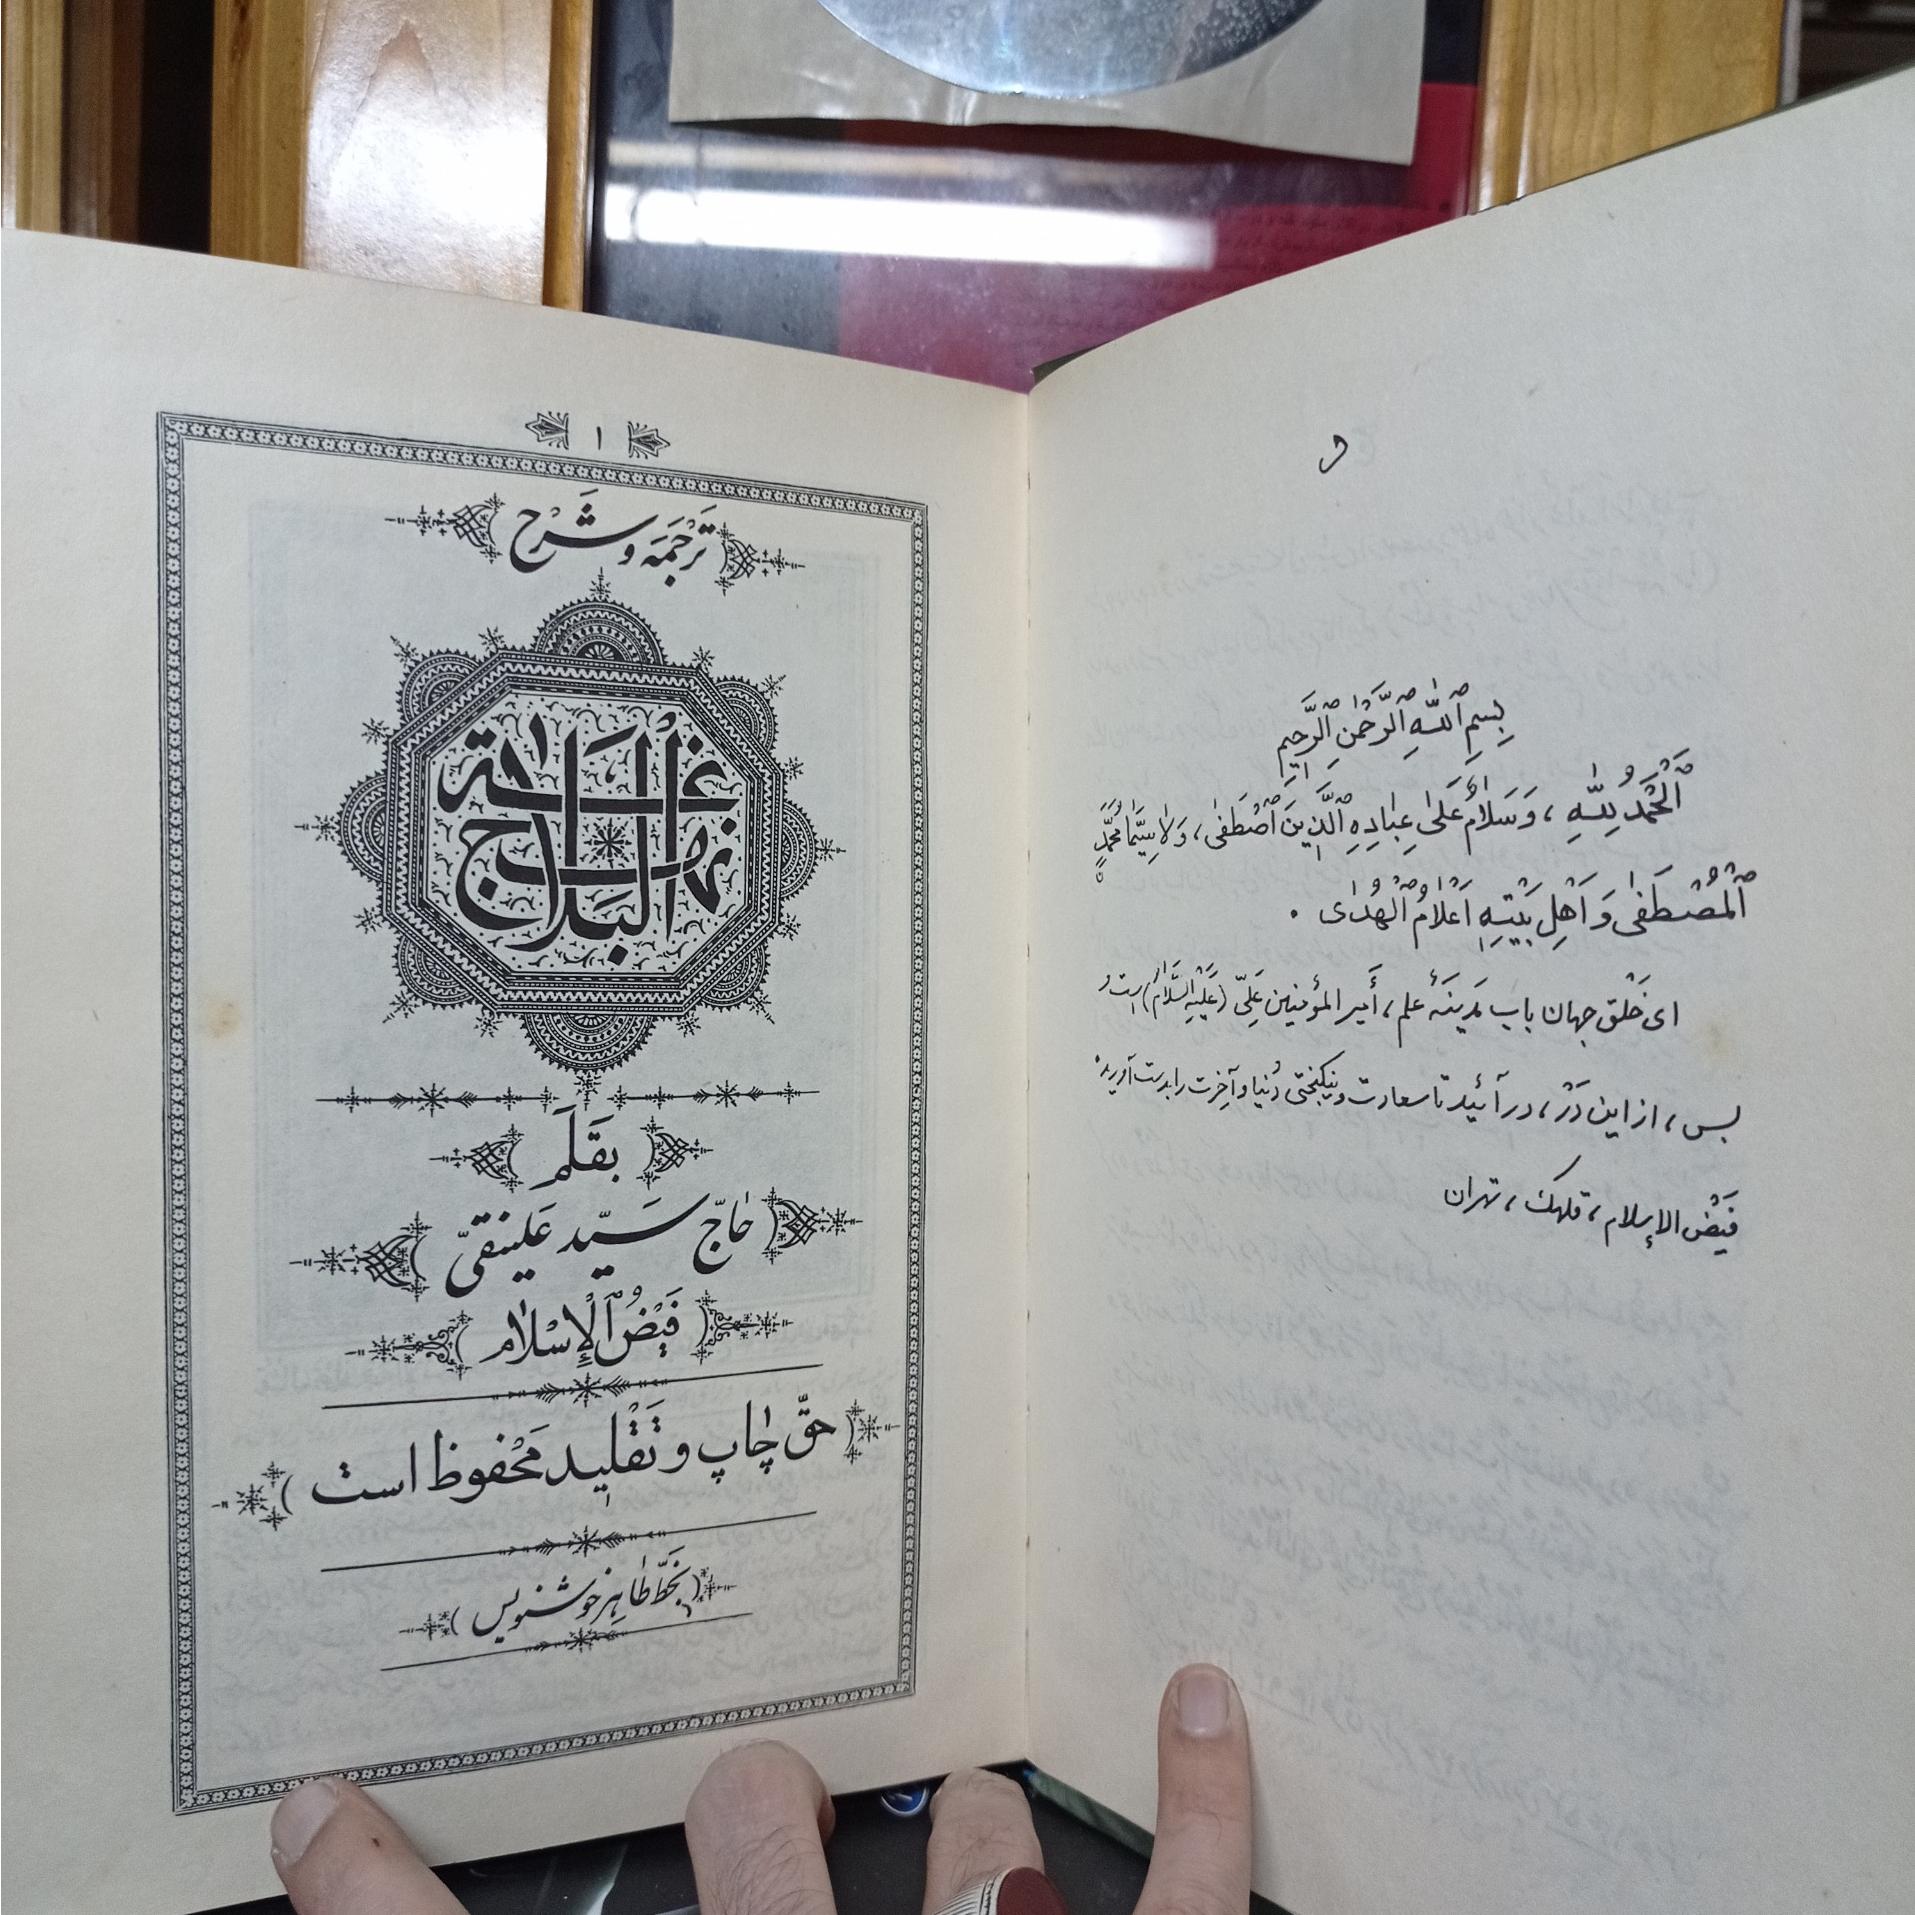 و
بِسْمِ ٱللّٰهِ ٱلرَّحْمٰنِ ٱلرَّحِيمِ
ٱلْحَمْدُ لِلّٰهِ ، وَ سَلٰامٌ عَلىٰ عِبٰادِهِ ٱلَّذِينَ ٱصْطَفىٰ ، وَ لٰا سِيَّمٰا مُحَمَّدٍ
ٱلْمُصْطَفىٰ وَ اَهْلِ بَيْتِهِ اَعْلٰامُ ٱلْهُدىٰ .
ای خَلْق جهان باب مَدینَهٔ علم ، أَمیر المؤمِنین عَلِیّ (عَلَیْهِ السَّلٰامُ) است و
بس ، از این دَرْ ، در آئید تا سعادت و نیکبختی دُنیا و آخِرت را بدست آورید
فَیْض الإسلام ، قلهک ، تهران
١
تَرْجَمَه و شَرْح
نهج البلاغة
بِقَلَم
حٰاجّ سَیِّد عَلینقیّ
فَیْضُ ٱلْإِسْلٰام
حقّ چٰاپ و تَقْلِید مَحْفوظ است
(بخَطّ طٰاهِر خوشنویس)